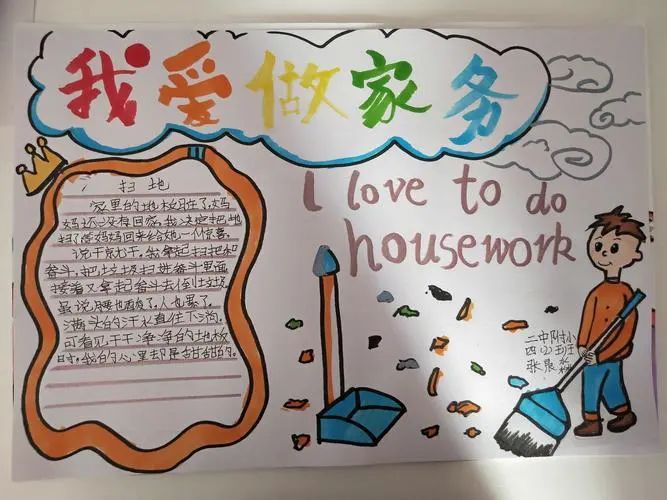 我爱做家务
I love to do
housework
扫地
家里的地板脏了,妈
妈还没有回家,我决定把地
扫了等妈妈回来给她一个惊喜。
说干就干,我拿起扫把和
畚斗,把垃圾扫进畚斗里面,
接着又拿起畚斗去倒垃圾
虽说腰也酸了,人也累了,
满头的汗水直往下淌,
可看见干干净净的地板
时,我的心里却是甜甜的。
二中附小
四(2)班
张晨